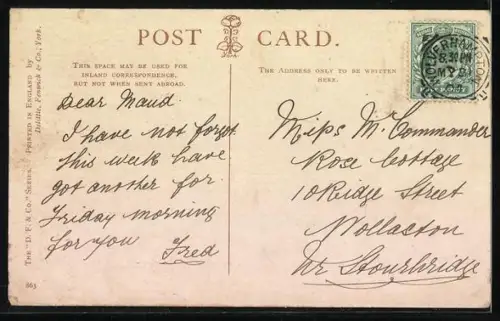 POST CARD.
THIS SPACE MAY BE USED FOR
INLAND CORRESPONDENCE,
BUT NOT WHEN SENT ABROAD.
THE ADDRESS ONLY TO BE WRITTEN
HERE.
Dear Maud.
I have not forgot
this week have
got another for
Friday morning
for you Fred
Miss M. Commander
Rose Cottage
10 Ridge Street
Wollaston
Nr Stourbridge
THE "D. F. & Co." SERIES. PRINTED IN ENGLAND by
Doidtle, Fenwick & Co., York.